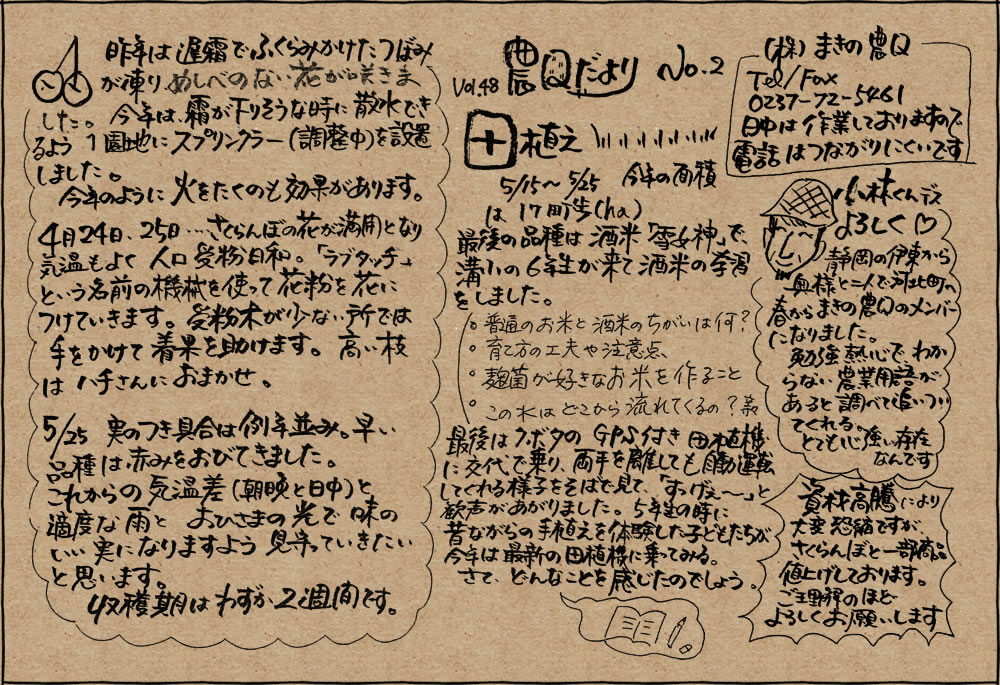 農Qだより No.2
Vol.48
(株)まきの農Q
Tel/Fax
0237-72-5461
日中は作業しておりますので
電話はつながりにくいです
昨年は遅霜でふくらみかけたつぼみ
が凍りめしべのない花が咲きま
した。今年は、霜が下りそうな時に散水でき
るよう1園地にスプリンクラー(調整中)を設置
しました。
今年のように火をたくのも効果があります。
4月24日、25日…さくらんぼの花が満開となり
気温もよく人口受粉日和。「ラブタッチ」
という名前の機械を使って花粉を花に
つけていきます。受粉木が少ない所では
手をかけて着果を助けます。高い枝
はハチさんにおまかせ。
5/25 実のつき具合は例年並み。早い
品種は赤みをおびてきました。
これからの気温差(朝晩と日中)と
適度な雨とおひさまの光で味の
いい実になりますよう見守っていきたい
と思います。
収穫期はわずか2週間です。
田植え
5/15〜5/25 今年の面積
は17町歩(ha)
最後の品種は酒米「雪女神」で、
溝小の6年生が来て酒米の学習
をしました。
○普通のお米と酒米のちがいは何?
○育て方の工夫や注意点、
○麹菌が好きなお米を作ること
○この水はどこから流れてくるの?等
最後はクボタのGPS付き田植機
に交代で乗り、両手を離しても自動運転
してくれる様子をそばで見て、「すっげぇ〜」と
歓声があがりました。5年生の時に
昔ながらの手植えを体験した子どもたちが
今年は最新の田植機に乗ってみる。
さて、どんなことを感じたのでしょう。
小林くんデス
よろしく♡
静岡の伊東から
奥様と二人で河北町へ
春からまきの農Qのメンバー
になりました。
勉強熱心で、わか
らない農業用語が
あると調べて追いつい
てくれる。
とても心強い存在
なんです
資材高騰により
大変恐縮ですが
さくらんぼと一部商品
値上げしております。
ご理解のほど
よろしくお願いします